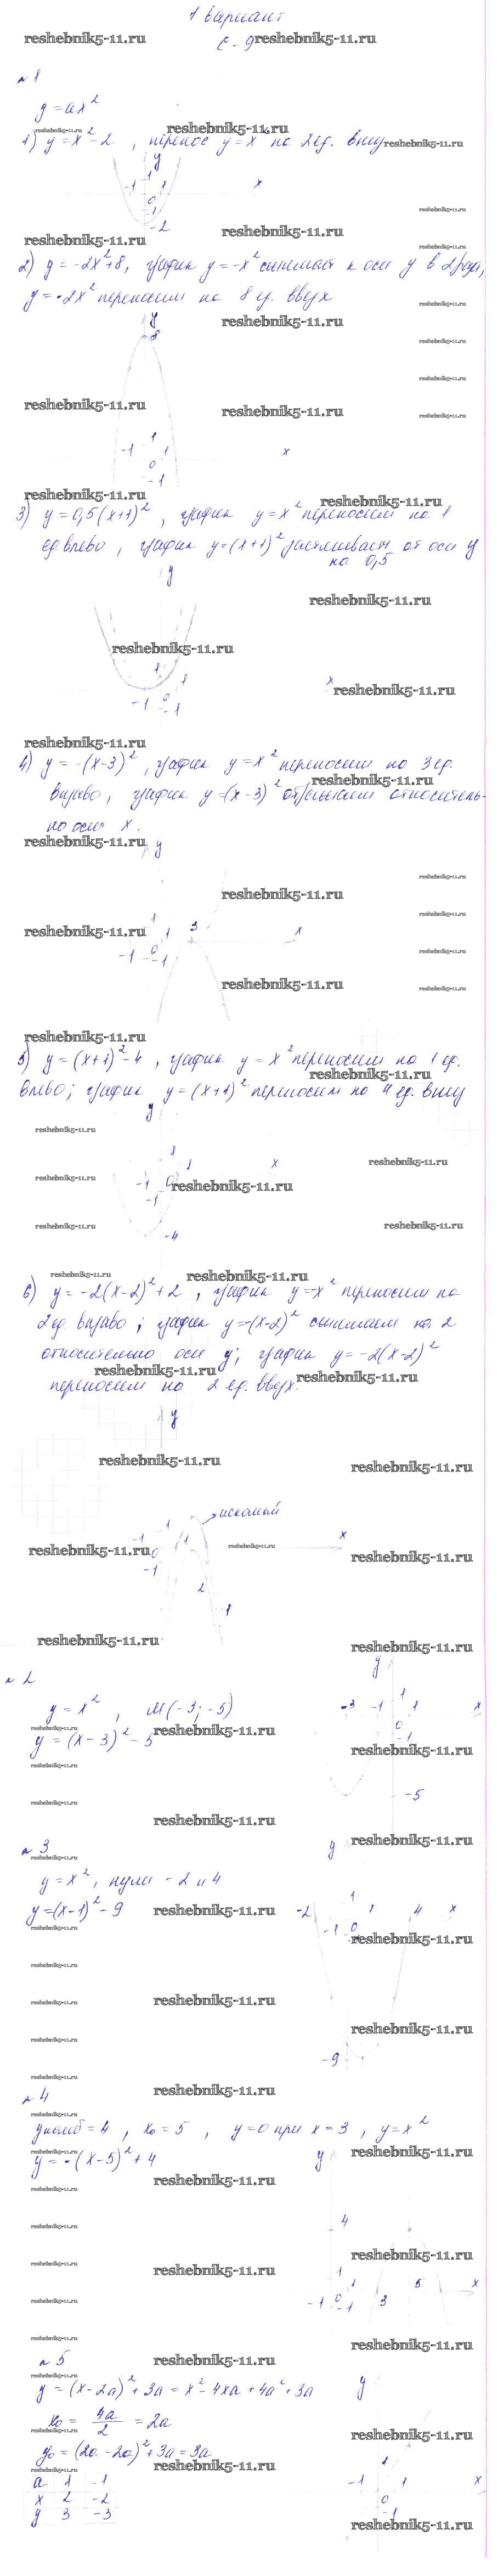 1 вариант
reshebnik5-11.ru С-9 reshebnik5-11.ru
№1
y = ax²
1) y = x² - 2, перенос y = x² на 2 ед. вниз
y
-1 1 1 x
0
-1
-2
2) y = -2x² + 8, график y = -x² сжимаем к оси y в 2 раза,
y = -2x² переносим на 8 ед. вверх
y
8
1
-1 1 x
0
-1
3) y = 0,5(x+1)², график y = x² переносим на 1
ед влево, график y = (x+1)² от оси y
на 0,5
y
1
1 x
-1 0
-1
4) y = -(x-3)², график y = x² переносим на 3 ед.
вправо, график y = (x-3)² относитель-
но оси x.
y
1
1 3 x
-1 0
-1
5) y = (x+1)² - 4, график y = x² переносим на 1 ед.
влево; график y = (x+1)² переносим на 4 ед. вниз
y
1
1 x
-1 0
-1
-4
6) y = -2(x-2)² + 2, график y = -x² переносим на
2 ед. вправо; график y = -(x-2)² сжимаем на 2
относительно оси y; график y = -2(x-2)²
переносим на 2 ед. вверх.
y
искомый
1
-1 1 x
0
-1
2
1
№2
y = x², M(-3; -5)
y = (x-3)² - 5
y
1
-3 -1 1 x
0
-1
-5
№3
y = x², нули -2 и 4
y = (x-1)² - 9
y
1
-2 1 4 x
-1 0
-9
№4
yнаиб = 4, x₀ = 5, y = 0 при x = 3, y = x²
y = -(x-5)² + 4
y
4
1
1 5 x
-1 0 3
-1
№5
y = (x-2a)² + 3a = x² - 4xa + 4a² + 3a
x₀ = 4a/2 = 2a
y₀ = (2a - 2a)² + 3a = 3a
a 1 -1
x 2 -2
y 3 -3
y
1
-1 1 x
0
-1
reshebnik5-11.ru